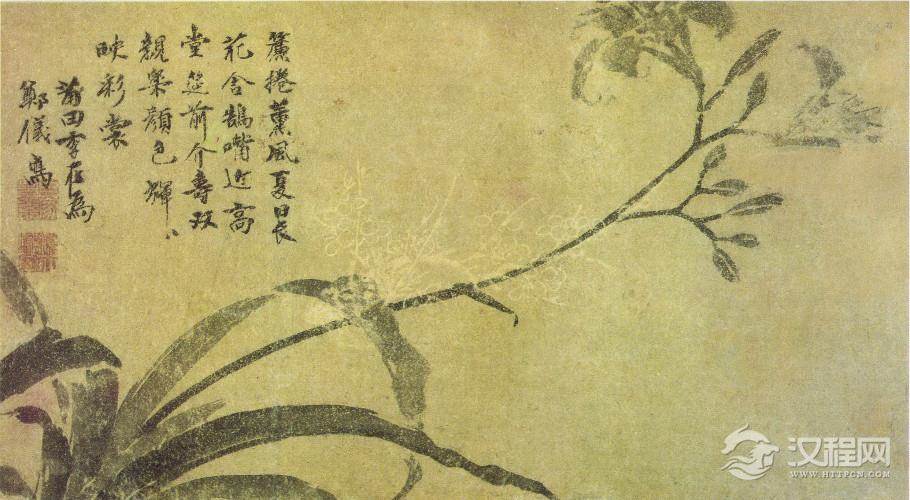 簾捲薰風夏日長
花含鵠嘴近高
堂筵前介壽双
親樂顔色輝〻
映彩裳
莆田李在爲
鄭儀寫
汉程网
WWW.HTTPCN.COM